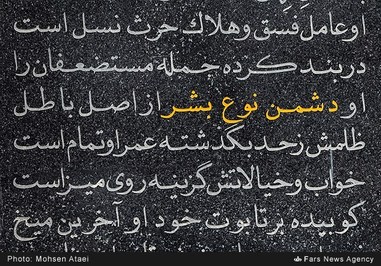 او عامل فسق و هلاک حرث نسل است
در بند کرده جمله مستضعفان را
او دشمن نوع بشر از اصل باطل
ظلمش ز حد بگذشته عمر او تمام است
خواب و خیالاتش گزینه روی میز است
کوبیده بر تابوت خود او آخرین میخ
Photo: Mohsen Ataei
Fars News Agency